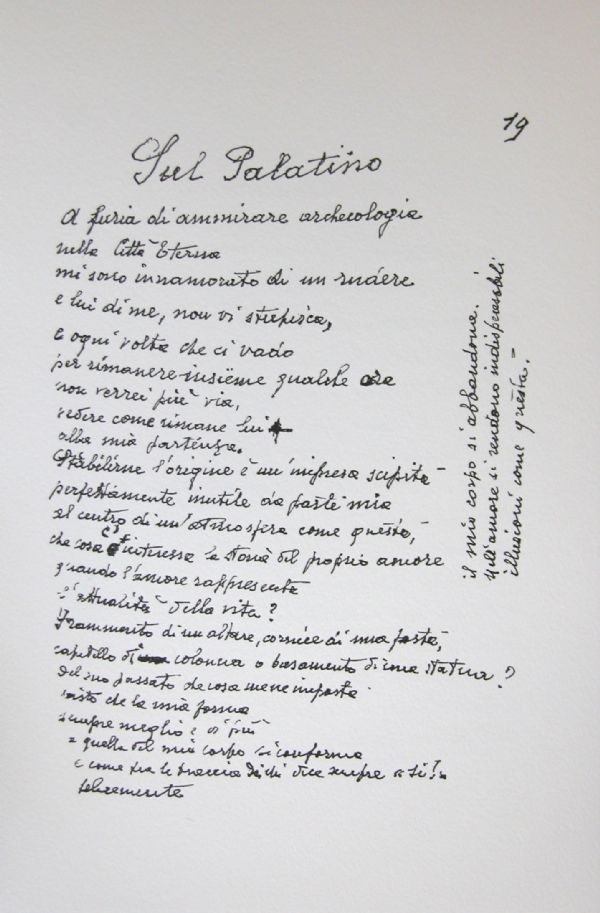 19
Sul Palatino
A furia di ammirare archeologia
nella Città Eterna
mi sono innamorato di un rudere
e lui di me, non vi stupisca,
e ogni volta che ci vado
per rimanere insieme qualche ora
non verrei più via,
vedere come rimane lui
alla mia partenza.
Stabilirne l'origine è un'impresa scipita
perfettamente inutile da parte mia
al centro di un'atmosfera come questa,
che cosa c'interessa la storia del proprio amore
quando l'amore rappresenta
l'attualità della vita?
Frammento di un altare, cornice di una porta,
capitello di colonna o basamento di una statua?
Del suo passato che cosa me ne importa
visto che la mia forma
sempre meglio e di più
a quella del mio corpo si conforma
e come tra le braccia di chi dice sempre "sì!"
felicemente
il mio corpo si abbandona.
Nell'amore si rendono indispensabili
illusioni come questa.